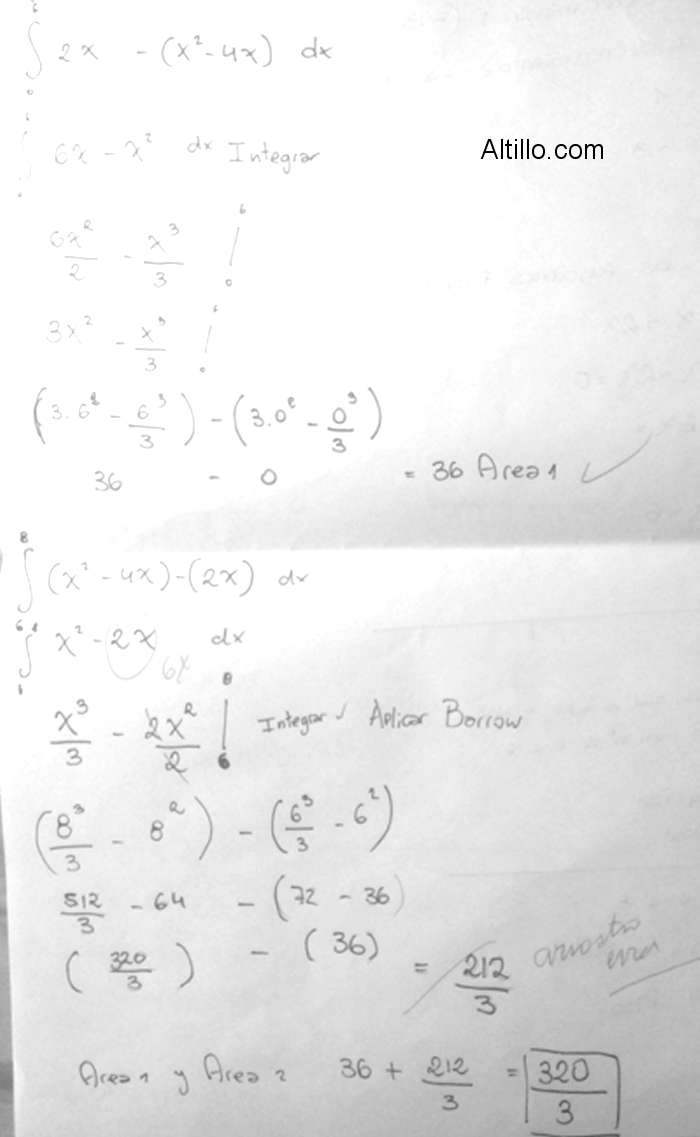 ∫₀⁶ 2x - (x² - 4x) dx
Altillo.com
∫ 6x - x² dx Integrar
6x²/2 - x³/3 |₀⁶
3x² - x³/3 |
(3.6² - 6³/3) - (3.0² - 0³/3)
36 - 0 = 36 Area 1 ✓
∫₆⁸ (x² - 4x) - (2x) dx
∫ x² - 2x dx
6x
x³/3 - 2x²/2 |₆⁸ Integrar ✓ Aplicar Borrow
(8³/3 - 8²) - (6³/3 - 6²)
512/3 - 64 - (72 - 36)
(320/3) - (36) = 212/3 arrastra error
Area 1 y Area 2 36 + 212/3 = 320/3